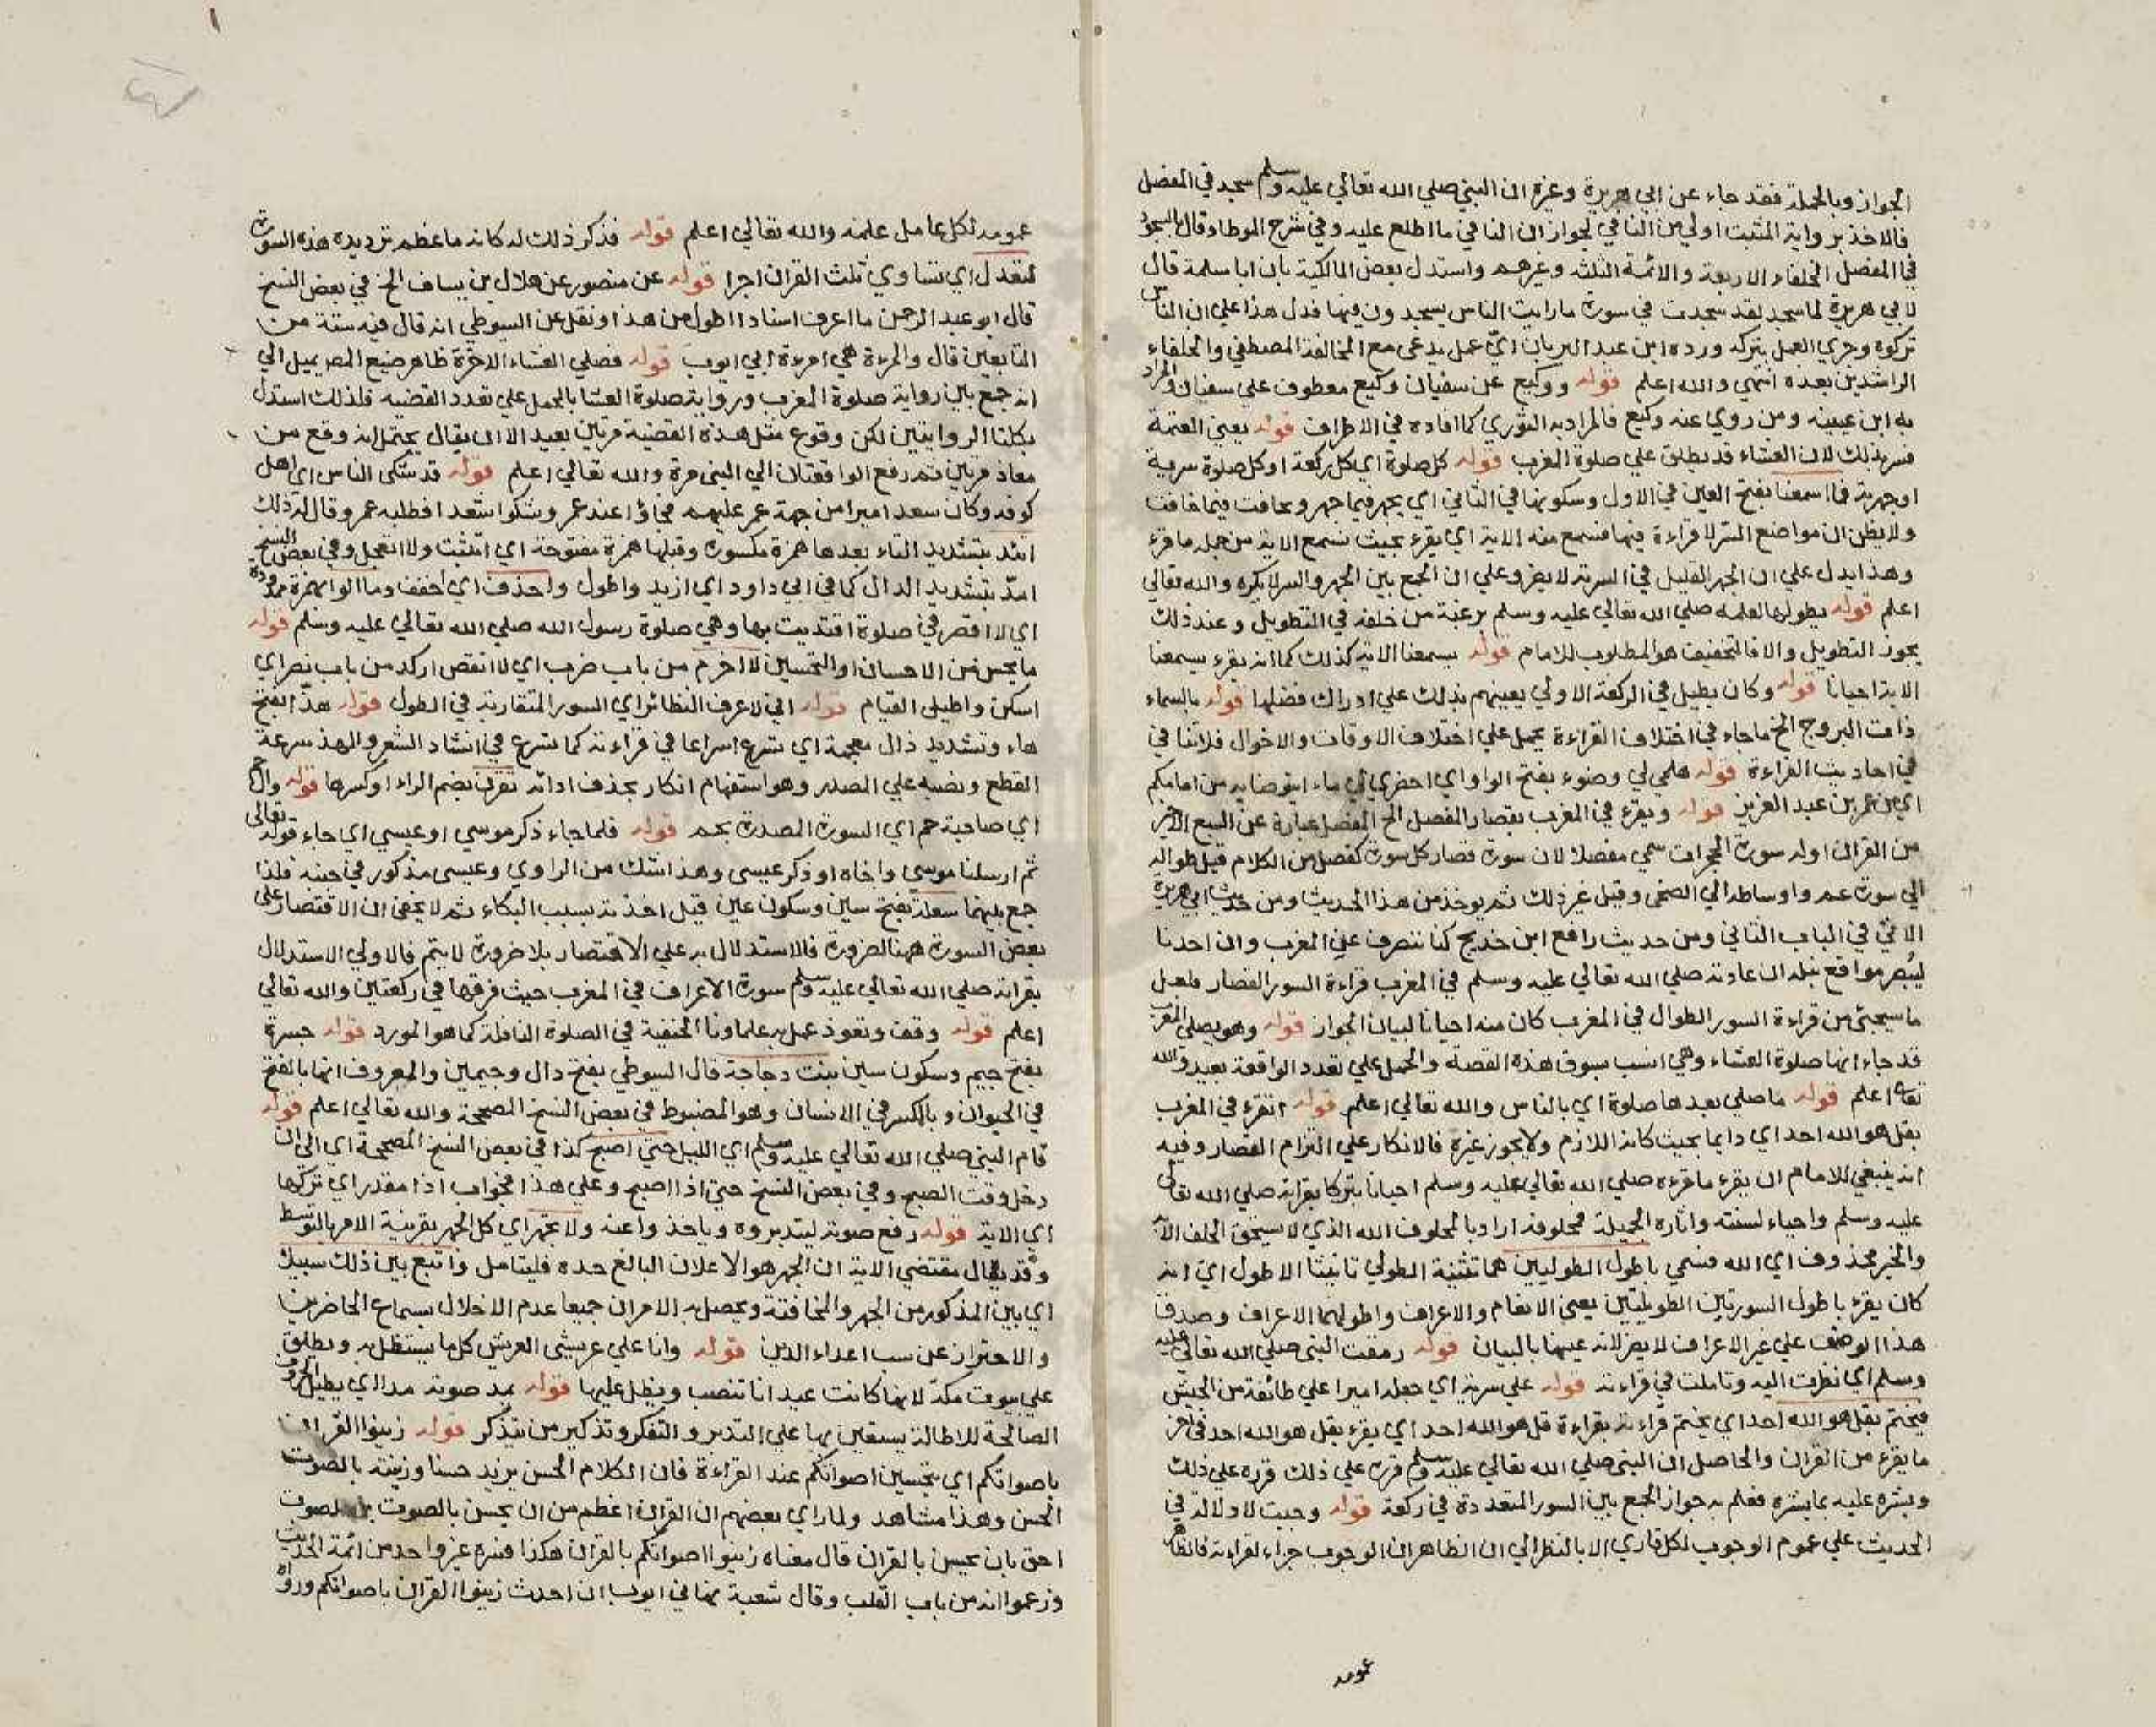 الجواز وبالجملة فقد جاء عن ابي هريرة وغيره ان النبي صلي الله تعالي عليه وسلم سجد في المفصل
فالاخذ برواية المثبت اولي من النافي لجواز ان النافي ما اطلع عليه وفي شرح الموطا وقال بالسجود
في المفصل الخلفاء الاربعة والائمة الثلثة وغيرهم واستدل بعض المالكية بان ابا سلمة قال
لابي هريرة لما سجد لقد سجدت في سورة ما رايت الناس يسجدون فيها فدل هذا علي ان الناس
تركوه وجري العمل بتركه ورده ابن عبد البر بان اي عمل يدعي مع المخالفة المصطفي والخلفاء
الراشدين بعده انتهي والله اعلم قوله ووكيع عن سفيان وكيع معطوف علي سفيان والمراد
به ابن عيينه ومن روي عنه وكيع فالمراد به الثوري كما افاده في الاطراف قوله يعني العتمة
فسر بذلك لان العشاء قد يطلق علي صلوة المغرب قوله كل صلوة اي كل ركعة او كل صلوة سرية
او جهرية فما اسمعنا بفتح العين في الاول وسكونها في الثاني اي يجهر فيما جهر ويخافت فيما خافت
ولا يظن ان مواضع السر لا قراءة فيها فنسمع منه الاية اي يقرء بحيث نسمع الاية من جملة ما قرء
وهذا يدل علي ان الجهر القليل في السرية لا يضر وعلي ان الجمع بين الجهر والسر لا يكره والله تعالي
اعلم قوله يطولها لعلمه صلي الله تعالي عليه وسلم برغبة من خلفه في التطويل وعند ذلك
يجوز التطويل والا فالتخفيف هو المطلوب للامام قوله يسمعنا الاية كذلك كما انه يقرء يسمعنا
الاية احيانا قوله وكان يطيل في الركعة الاولي يعينهم بذلك علي ادراك فضلها قوله بالسماء
ذات البروج الخ ما جاء في اختلاف القراءة يحمل علي اختلاف الاوقات والاحوال فلا تنافي
في احاديث القراءة قوله هلمي لي وضوء بفتح الواو اي احضري لي ماء اتوضا به من امامكم
اي من عمر بن عبد العزيز قوله ويقرء في المغرب بقصار المفصل الخ المفصل عبارة عن السبع الاخير
من القران اوله سورة الحجرات سمي مفصلا لان سورة قصار كل سورة كفصل من الكلام قيل طواله
الي سورة عم واوساطه الي الضحي وقيل غير ذلك ثم يوخذ من هذا الحديث ومن حديث ابي هريرة
الاتي في الباب الثاني ومن حديث رافع ابن خديج كنا ننصرف عن المغرب وان احدنا
ليبصر مواقع نبله ان عادته صلي الله تعالي عليه وسلم في المغرب قراءة السور القصار فلعل
ما سيجئ من قراءة السور الطوال في المغرب كان منه احيانا لبيان الجواز قوله وهو يصلي المغرب
قد جاء انها صلوة العشاء وهي انسب بسوق هذه القصة والحمل علي تعدد الواقعة بعيد والله
تعالي اعلم قوله ما صلي بعدها صلوة اي بالناس والله تعالي اعلم قوله اتقرء في المغرب
بقل هو الله احد اي دايما بحيث كانه اللازم ولا يجوز غيره فالانكار علي التزام القصار وفيه
انه ينبغي للامام ان يقرء ما قرءه صلي الله تعالي عليه وسلم احيانا تبركا بقراته صلي الله تعالي
عليه وسلم واحياء لسنته واثاره الجميلة فمحلوفه اراد بالمحلوف الله الذي لا يستحق الحلف الا به
والخبر محذوف اي الله قسمي باطول الطوليين هما تثنية الطولي تانيث الاطول اي انه
كان يقرء باطول السورتين الطويلتين يعني الانعام والاعراف واطولهما الاعراف وصدق
هذا الوصف علي غير الاعراف لا يضر لانه عينها بالبيان قوله رمقت النبي صلي الله تعالي عليه
وسلم اي نظرت اليه وتاملت في قراءته قوله علي سرية اي جعله اميرا علي طائفة من الجيش
فيختم بقل هو الله احد اي يختم قراءته بقراءة قل هو الله احد اي يقرء بقل هو الله احد في اخر
ما يقرء من القران والحاصل ان النبي صلي الله تعالي عليه وسلم قرره علي ذلك قرره علي ذلك
وبشره عليه بما بشره فعلم به جواز الجمع بين السور المتعددة في ركعة قوله وجبت لا دلالة في
الحديث علي عموم الوجوب لكل قاري الا بالنظر الي ان الظاهر ان الوجوب جزاء لقراءته فالظاهر
عمومه
عمومه لكل عامل علمه والله تعالي اعلم قوله فذكر ذلك له كانه ما عظم ترديده هذه السورة
لتعدل اي تساوي ثلث القران اجرا قوله عن منصور عن هلال بن يساف الخ في بعض النسخ
قال ابو عبد الرحمن ما اعرف اسنادا اطول من هذا ونقل عن السيوطي انه قال فيه ستة من
التابعين قال والمرءة هي امرءة ابي ايوب قوله فصلي العشاء الاخرة ظاهر صنيع المص يميل الي
انه جمع بين رواية صلوة المغرب ورواية صلوة العشا بالحمل علي تعدد القضيه فلذلك استدل
بكلتا الروايتين لكن وقوع مثل هذه القضية مرتين بعيد الا ان يقال يحتمل انه وقع من
معاذ مرتين ثم رفع الواقعتان الي النبي مرة والله تعالي اعلم قوله قد شكي الناس اي اهل
كوفه وكان سعد اميرا من جهة عمر عليهم فجاؤا عند عمر وشكوا سعدا فطلبه عمر وقال له ذلك
اتئد بتشديد التاء بعدها همزة مكسورة وقبلها همزة مفتوحة اي اتثبت ولا اتعجل وفي بعض النسخ
امدّ بتشديد الدال كما في ابي داود اي ازيد واطول واحذف اي اخفف وما الوا بهمزة ممدودة
اي لا اقصر في صلوة اقتديت بها وهي صلوة رسول الله صلي الله تعالي عليه وسلم قوله
ما يحسن من الاحسان او التحسين لا اخرم من باب ضرب اي لا انقص اركد من باب نصر اي
اسكن واطيل القيام قوله اني لاعرف النظائر اي السور المتقاربة في الطول قوله هذّا بفتح
هاء وتشديد ذال معجمة اي تسرع اسراعا في قراءته كما تسرع في انشاد الشعر والهذ سرعة
القطع ونصبه علي المصدر وهو استفهام انكار بحذف اداته تقرن بضم الراء او كسرها قوله وال حم
اي صاحبة حم اي السورة المصدرة بحم قوله فلما جاء ذكر موسي او عيسي اي جاء قوله تعالي
ثم ارسلنا موسي واخاه او ذكر عيسي وهذا شك من الراوي وعيسي مذكور في جنبه فلذا
جمع بينهما سعلة بفتح سين وسكون عين قيل اخذته بسبب البكاء ثم لا يخفي ان الاقتصار علي
بعض السورة ههنا لضرورة فالاستدلال به علي الاقتصار بلا ضرورة لا يتم فالاولي الاستدلال
بقراته صلي الله تعالي عليه وسلم سورة الاعراف في المغرب حيث فرقها في ركعتين والله تعالي
اعلم قوله وقف وتعوذ عمل به علماونا الحنفية في الصلوة النافلة كما هو المورد قوله جسرة
بفتح جيم وسكون سين بنت دجاجة قال السيوطي بفتح دال وجيمين والمعروف انها بالفتح
في الحيوان وبالكسر في الانسان وهو المضبوط في بعض النسخ المصححة والله تعالي اعلم قوله
قام النبي صلي الله تعالي عليه وسلم اي الليل حتي اصبح كذا في بعض النسخ المصححة اي الي ان
دخل وقت الصبح وفي بعض النسخ حتي اذا اصبح وعلي هذا فجواب اذا مقدر اي تركها
اي الاية قوله رفع صوته ليتدبروه وياخذوا عنه ولا تجهر اي كل الجهر بقرينة الامر بالتوسط
وقد يقال مقتضي الاية ان الجهر هو الاعلان البالغ حده فليتامل وابتغ بين ذلك سبيلا
اي بين المذكور من الجهر والمخافتة ويحصل به الامران جميعا عدم الاخلال بسماع الحاضرين
والاحتراز عن سب اعداء الدين قوله وانا علي عريشي العريش كل ما يستظل به ويطلق
علي بيوت مكة لانها كانت عيدانا تنصب ويظل عليها قوله يمد صوته مدا اي يطيل الحروف
الصالحة للاطالة يستعين بها علي التدبر والتفكر وتذكير من يتذكر قوله زينوا القران
باصواتكم اي بتحسين اصواتكم عند القراءة فان الكلام الحسن يزيد حسنا وزينة بالصوت
الحسن وهذا مشاهد ولما راي بعضهم ان القران اعظم من ان يحسن بالصوت بل الصوت
احق بان يحسن بالقران قال معناه زينوا اصواتكم بالقران هكذا فسره غير واحد من ائمة الحديث
وزعموا انه من باب القلب وقال شعبة نهاني ايوب ان احدث زينوا القران باصواتكم ورواه